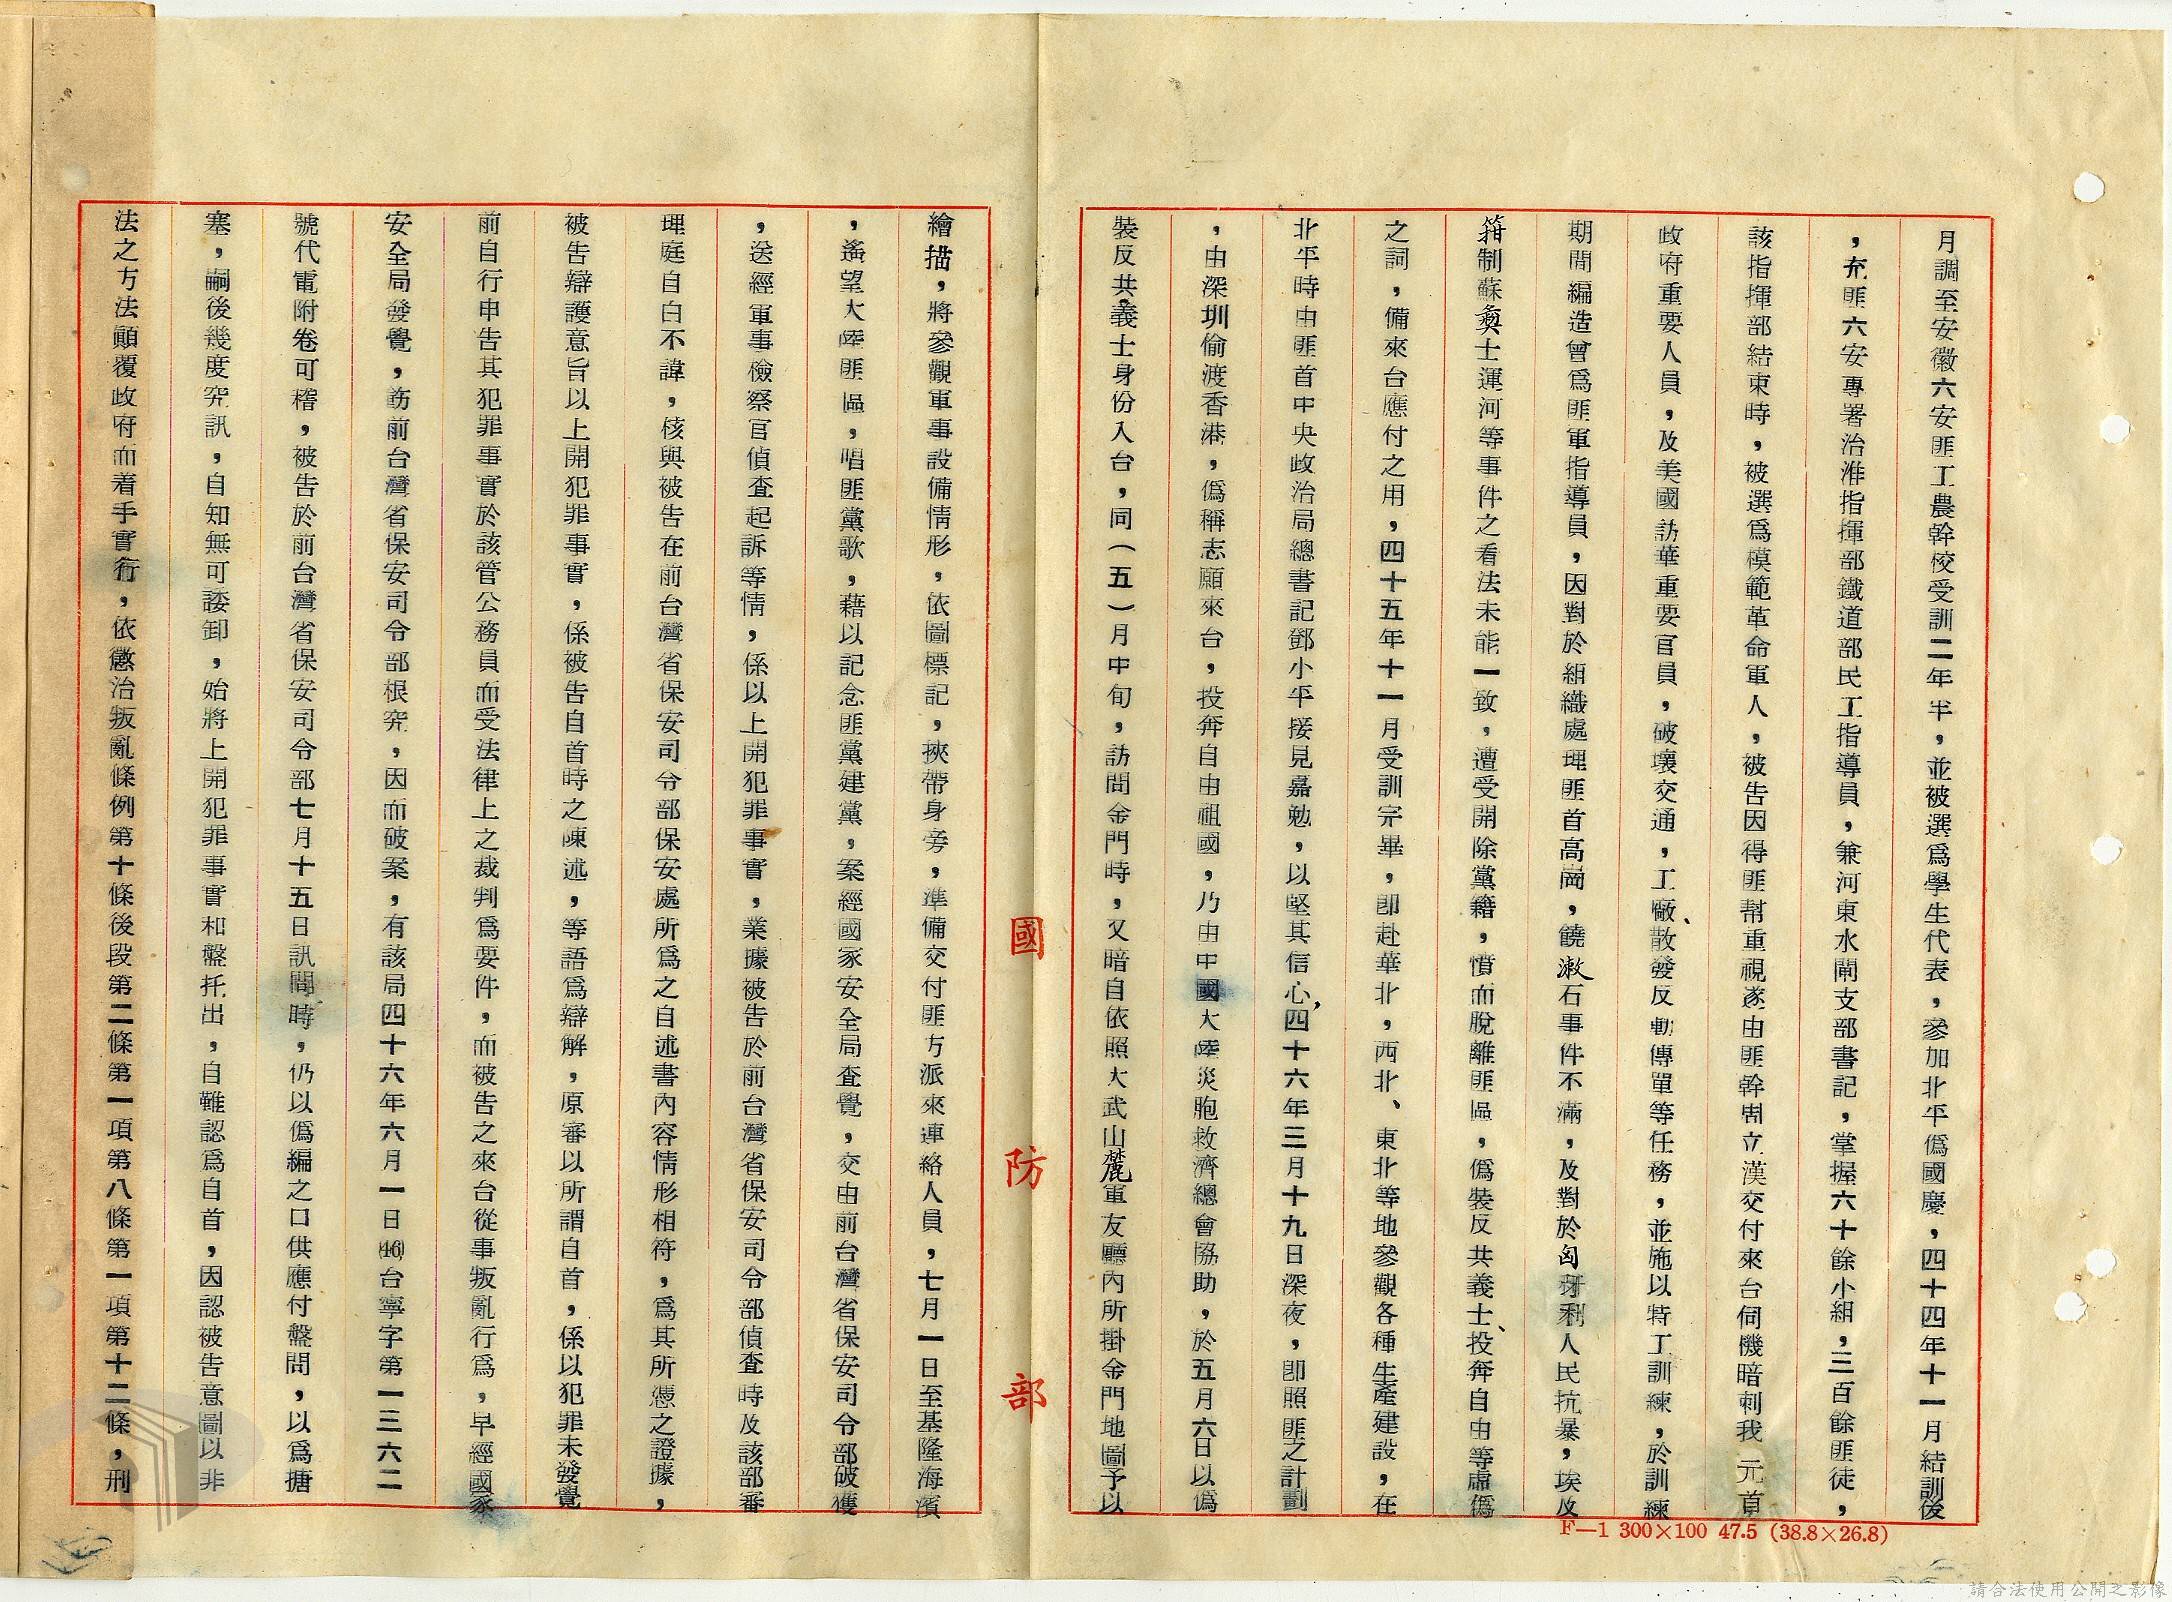 月調至安徽六安匪工農幹校受訓二年半，並被選為學生代表，參加北平僞國慶，四十四年十一月結訓後
，充匪六安專署治淮指揮部鐵道部民工指導員，兼河東水閘支部書記，掌握六十餘小組，三百餘匪徒，
該指揮部結束時，被選為模範革命軍人，被告因得匪幫重視遂由匪幹周立漢交付來台伺機暗刺我 元首
政府重要人員，及美國訪華重要官員，破壞交通，工廠、散發反動傳單等任務，並施以特工訓練，於訓練
期間編造曾為匪軍指導員，因對於組織處理匪首高崗，饒漱石事件不滿，及對於匈牙利人民抗暴，埃及
箝制蘇彝士運河等事件之看法未能一致，遭受開除黨籍，憤而脫離匪區，僞裝反共義士、投奔自由等虛僞
之詞，備來台應付之用，四十五年十一月受訓完畢，卽赴華北，西北、東北等地參觀各種生產建設，在
北平時由匪首中央政治局總書記鄧小平接見嘉勉，以堅其信心，四十六年三月十九日深夜，卽照匪之計劃
，由深圳偷渡香港，僞稱志願來台，投奔自由祖國，乃由中國大陸災胞救濟總會協助，於五月六日以僞
裝反共義士身份入台，同（五）月中旬，訪問金門時，又暗自依照大武山麓軍友廳內所掛金門地圖予以
國防部
F—1 300×100 47.5 (38.8×26.8)
繪描，將參觀軍事設備情形，依圖標記，挾帶身旁，準備交付匪方派來連絡人員，七月一日至基隆海濱
，遙望大陸匪區，唱匪黨歌，藉以記念匪黨建黨，案經國家安全局查覺，交由前台灣省保安司令部破獲
，送經軍事檢察官偵查起訴等情，係以上開犯罪事實，業據被告於前台灣省保安司令部偵查時及該部審
理庭自白不諱，核與被告在前台灣省保安司令部保安處所為之自述書內容情形相符，為其所憑之證據，
被告辯護意旨以上開犯罪事實，係被告自首時之陳述，等語為辯解，原審以所謂自首，係以犯罪未發覺
前自行申告其犯罪事實於該管公務員而受法律上之裁判為要件，而被告之來台從事叛亂行為，早經國家
安全局發覺，飭前台灣省保安司令部根究，因而破案，有該局四十六年六月一日(46)台寧字第一三六二
號代電附卷可稽，被告於前台灣省保安司令部七月十五日訊問時，仍以僞編之口供應付盤問，以為搪
塞，嗣後幾度究訊，自知無可諉卸，始將上開犯罪事實和盤托出，自難認為自首，因認被告意圖以非
法之方法顚覆政府而着手實行，依懲治叛亂條例第十條後段第二條第一項第八條第一項第十二條，刑
請合法使用公開之影像